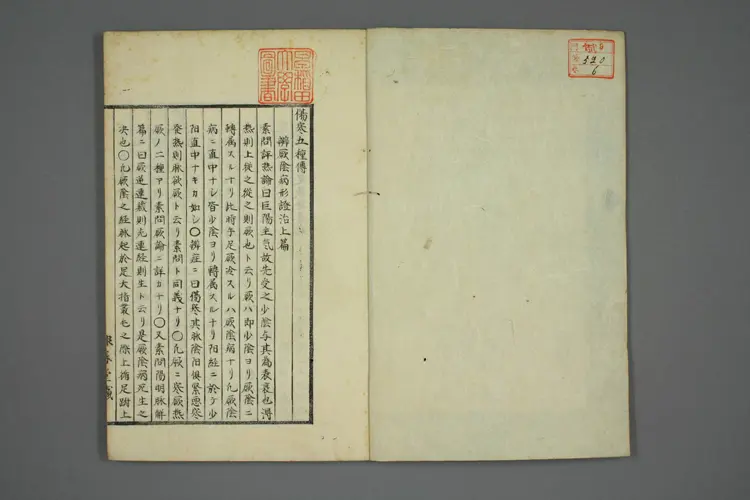 傷寒五種傳
辨厥陰病形證治上篇
素問評熱論曰巨陽主氣故先受之少陰与其為表裏也得
熱則上従之従之則厥也ト云リ厥ハ即少陰ヨリ厥陰ニ
轉属スルナリ此時手足厥冷スルハ厥陰病ナリ凡厥陰
病ニ直中ナシ皆少陰ヨリ轉属スルナリ陽経ニ於テ少
陽直中ナキカ如シ〇辨症ニ曰傷寒其脉陰陽俱緊悪寒
發熱則脉欲厥ト云リ素問ト同義ナリ〇凡厥ニ寒厥熱
厥ノ二種アリ素問厥論ニ詳カナリ〇又素問陽明脉解
篇ニ曰厥逆連臓則死連経則生ト云リ是厥陰病死生之
决也〇凡厥陰之経脉起於足大指叢毛之際上循足跗上
早稲田大學圖書
520
6